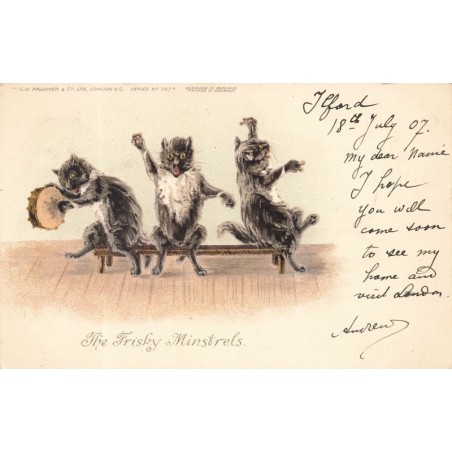 C.W. FAULKNER & CO. LTD., LONDON E.C. SERIES NO.
DESIGNED IN ENGLAND
PRINTED IN GERMANY
Ilford
18th July 07.
My dear
I hope
you will
come soon
to see my
home and
visit London.
Andrew
The Frisky Minstrels.